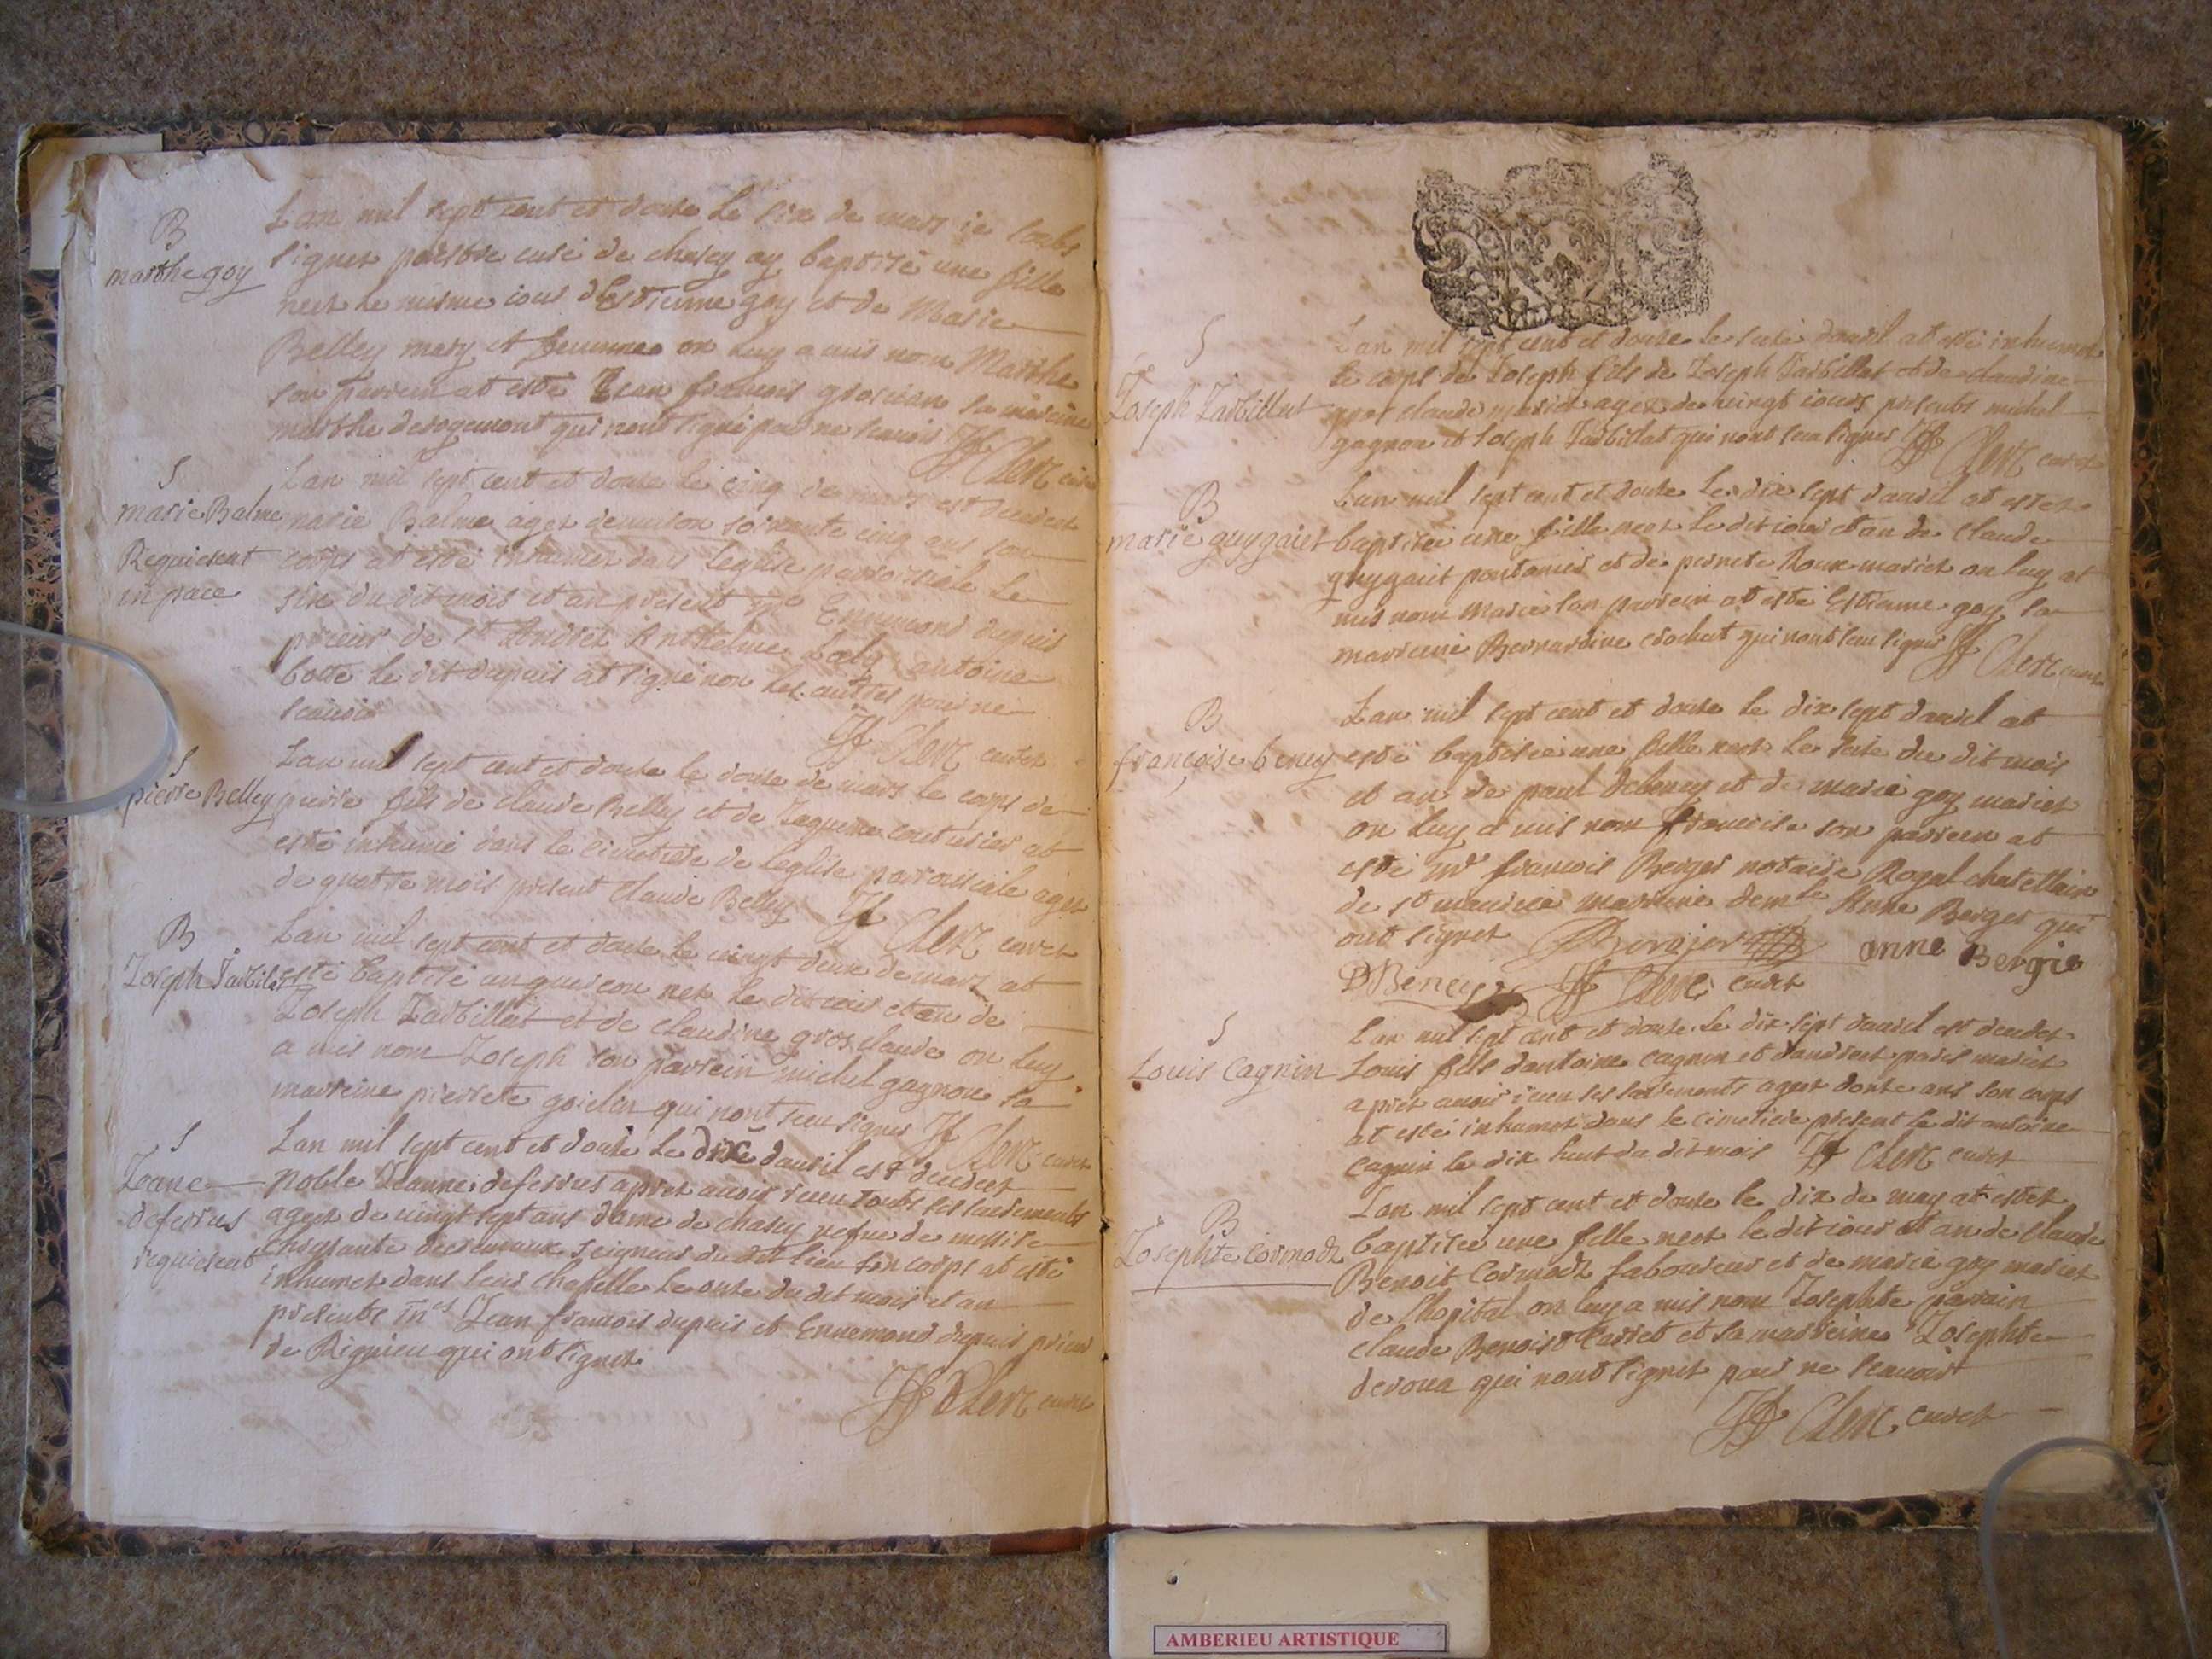 B
marthe goy
Lan mil sept cent et douse le six de mars ie soubs
signer prestre curé de chasey ay baptisé une fille
neer le mesme iour d'Estienne goy et de Marie
Belley mary et femme on luy a mis nom Marthe
son parrein at esté Jean francois grosjean sa marreine
marthe derogemont qui nont signé pour ne scauoir JJ Clerc curer
S
marie Balme
Requiescat
in pace
Lan mil sept cent et douse le cinq de mars est decedeer
marie Balme ager denuiron soixante cinq ans son
corps at esté inhumer dans leglise parroissiale le
six du dit mois et an present Ennemond dupuis
prieur de st Andrer Anthelme Laly antoine
botte le dit dupuis at signé non les autres pour ne
scauoir
JJ Clerc curer
S
pierre Belley
Lan mil sept cent et douse le douse de mars le corps de
pierre fils de claude Belley et de Jaqueme couturier at
esté inhumé dans le cimetiere de leglise parroissiale ager
de quattre mois present Claude Belley JJ Clerc curer
B
Joseph Tarbillat
Lan mil sept cent et douse le vingt deux de mars at
esté baptisé un garcon ner le dit iour et an de
Joseph Tarbillat et de claudine grosclaude on luy
a mis nom Joseph son parrein michel gagnon sa
marreine pierrete goiclin qui nont sceu signer JJ Clerc curer
S
Jeane
deferrus
requiescat
Lan mil sept cent et douse le dixe dauril est decedeer
noble Jeanne deferrus aprer auoir receu touts ses sacrements
ageer de vingt sept ans dame de chasey vefue de messire
seigneur du dit lieu son corps at esté
inhumer dans leur chapelle le onse du dit mois et an
presents mrs Jean francois dupuis et Ennemond dupuis prieur
de Rignieu qui ont signer
JJ Clerc curer
S
Joseph Tarbillat
Lan mil sept cent et douse le seise dauril at esté inhumer
le corps de Joseph fils de Joseph Tarbillat et de claudine
gros claude marier ager de vingt iours presents michel
gagnon et Joseph Tarbillat qui nont sceu signer JJ Clerc curer
B
marie guygaier
Lan mil sept cent et douse le dix sept dauril at ester
baptisée une fille neer le dit iour et an de claude
guygaier pontanier et de pernete Roux marier on luy at
mis nom marie son parrein at esté Estienne goy sa
marreine Bernardine crochat qui nont sceu signer JJ Clerc curer
B
françoise beney
Lan mil sept cent et douse le dix sept dauril at
esté baptisée une fille neer le seise du dit mois
et an de paul debeney et de marie goy marier
on luy a mis nom francoise son parrein at
esté mr francois Berger notaire Royal chatellain
de st maurice marreine demle Anne Berger qui
ont signer
anne Bergie
DBeney JJ Clerc curer
S
Louis Cagnin
Lan mil sept cent et douse le dix sept dauril est decedee
Louis fils dantoine cagnin et dandreer paris marier
aprer auoir receu ses sacrements ager douse ans son corps
at esté inhumer dans le cimetiere present le dit antoine
cagnin le dix huit du dit mois JJ Clerc curer
B
Josephte Cormodz
Lan mil sept cent et douse le dix de may at ester
baptisée une fille neer le dit iour et an de claude
Benoit Cormodz laboureur et de marie goy marier
de lhopital on luy a mis nom Josephte parrain
claude Benoist Carret et sa marreine Josephte
deroua qui nont signer pour ne scauoir
JJ Clerc curer
AMBERIEU ARTISTIQUE